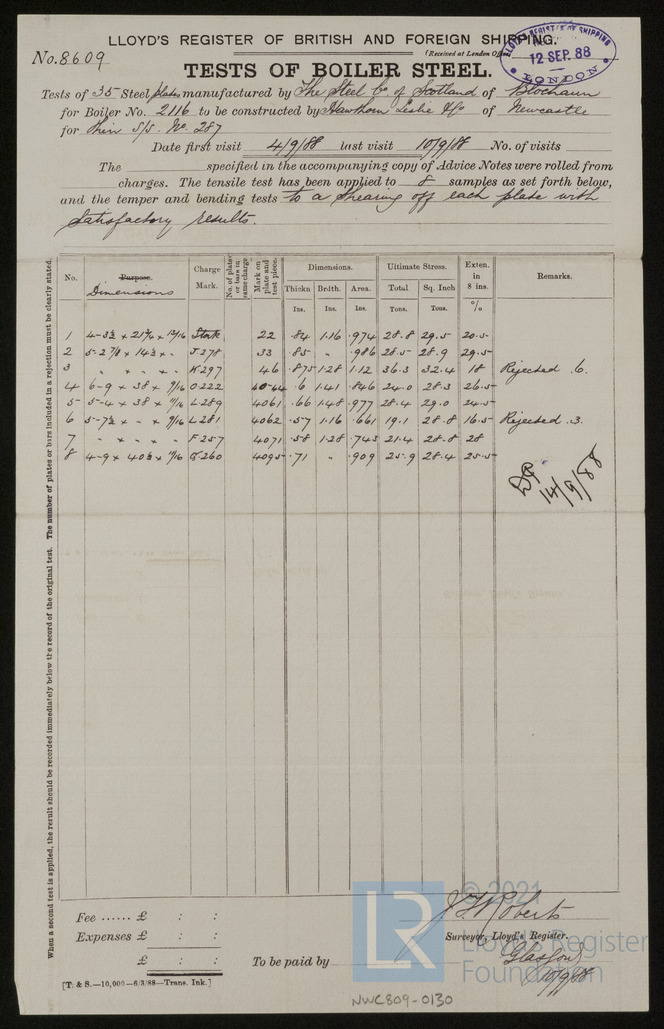 LLOYD'S REGISTER OF BRITISH AND FOREIGN SHIPPING.
No. 8609
(Received at London Office
LLOYD'S REGISTER OF SHIPPING
12 SEP. 88
LONDON
TESTS OF BOILER STEEL.
Tests of 35 Steel plates manufactured by The Steel Co. of Scotland of Blochairn
for Boiler No. 2116 to be constructed by Hawthorn Leslie & Co of Newcastle
for their S/S. No. 287
Date first visit 4/9/88 last visit 10/9/88 No. of visits
The specified in the accompanying copy of Advice Notes were rolled from
charges. The tensile test has been applied to 8 samples as set forth below,
and the temper and bending tests to a shearing off each plate with
satisfactory results.
When a second test is applied, the result should be recorded immediately below the record of the original test. The number of plates or bars included in a rejection must be clearly stated.
No. Purpose. Dimensions Charge Mark. No. of plates or bars in same charge Mark on plate and test piece. Dimensions. Ultimate Stress. Exten. in 8 ins. Remarks.
Thickn Brdth. Area. Total Sq. Inch
Ins. Ins. Ins. Tons. Tons. %
1 22 .84 1.16 .974 28.8 29.5 20.5
2 J.278 33 .85 " .986 28.5 28.9 29.5
3 " " " K297 46 .875 1.28 1.12 36.3 32.4 18 Rejected .6.
4 6-9 × 38 × 7/16 O.222 40-44 .6 1.41 .846 24.0 28.3 26.5
5 5-4 × 38 × L.289 4061 .66 1.48 .977 28.4 29.0 24.5
6 5-7½ × " × 7/16 L.281 4062 .57 1.16 .661 19.1 28.8 16.5 Rejected .3.
7 " " " " F257 4071 .58 1.28 .743 21.4 28.8 28
8 4-9 × 40½ × 260 4095 .71 " .909 25.9 28.4 25.5
14/9/88
Fee ...... £ : :
Expenses £ : :
£ : :
To be paid by
Surveyor, Lloyd's Register.
Glasgow
10/9/88
[T. & S.—10,000—6/3/88—Trans. Ink.]
LR
© 2021
Lloyd's Register
Foundation
NWC809-0130